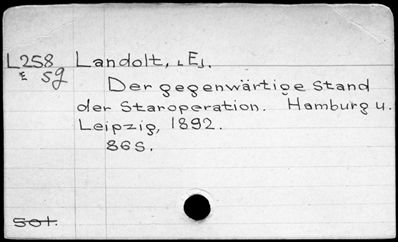 L258 Landolt, [E].
E 5g
Der gegenwärtige Stand
der Staroperation. Hamburg u.
Leipzig, 1892.
86 S.
Sot.